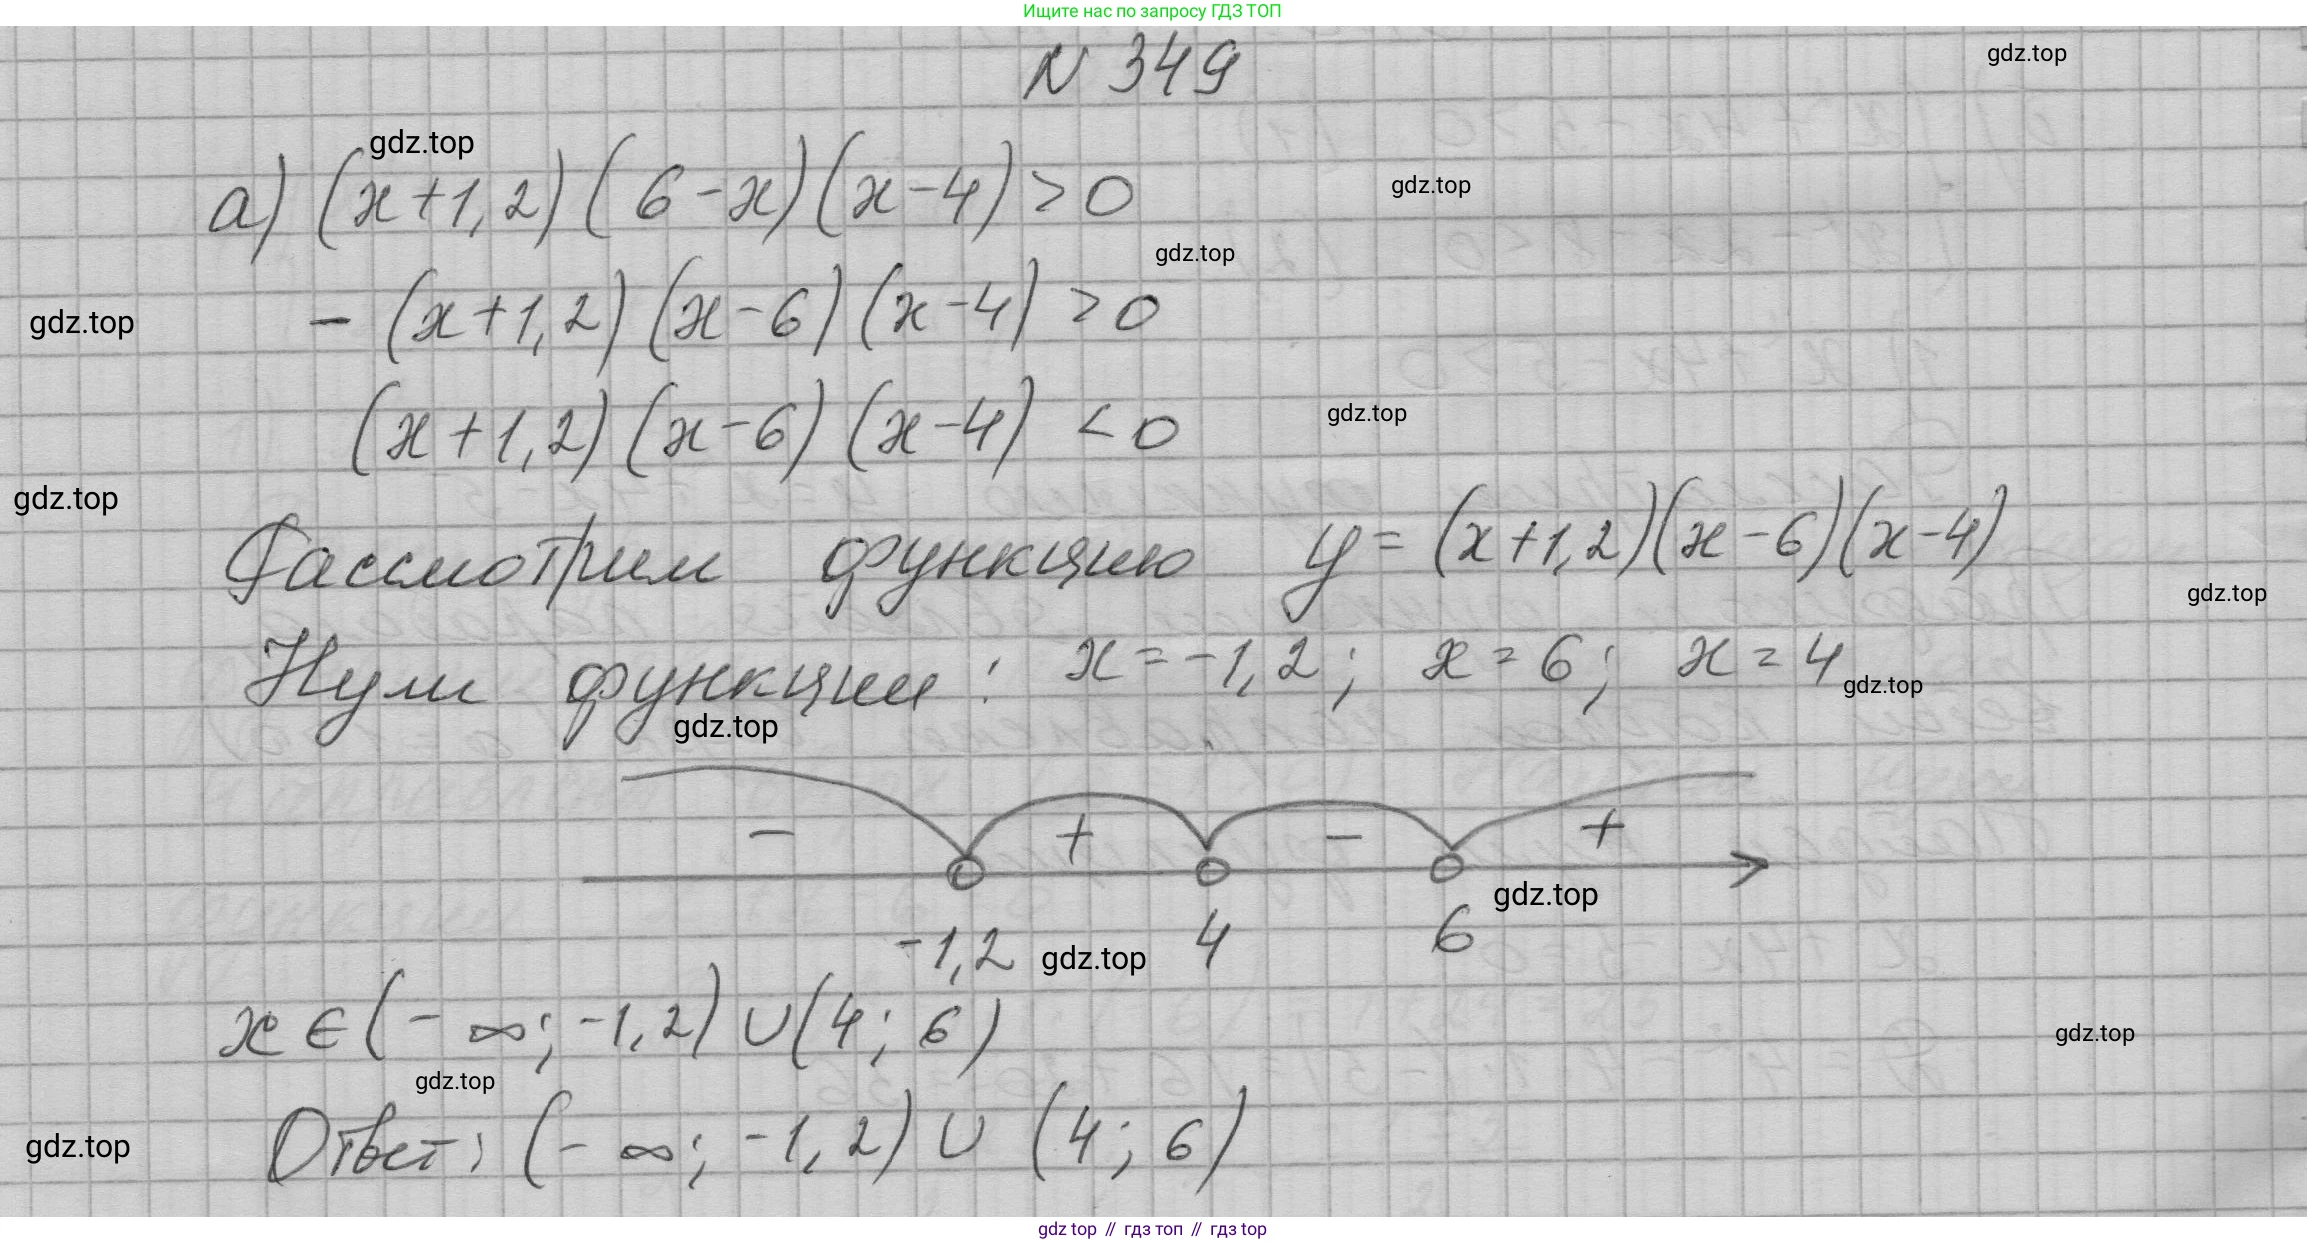 Ищите нас по запросу ГДЗ ТОП
N 349
gdz.top
gdz.top
а) (x+1,2)(6-x)(x-4)>0
gdz.top
gdz.top
-(x+1,2)(x-6)(x-4)>0
gdz.top
(x+1,2)(x-6)(x-4)<0
gdz.top
gdz.top
Рассмотрим функцию y=(x+1,2)(x-6)(x-4)
gdz.top
Нули функции: x=-1,2; x=6; x=4
gdz.top
gdz.top
- + - +
gdz.top
-1,2 4 6
gdz.top
x∈(-∞; -1,2)∪(4; 6)
gdz.top
gdz.top
Ответ: (-∞; -1,2)∪(4; 6)
gdz.top
gdz top // гдз топ // гдз top